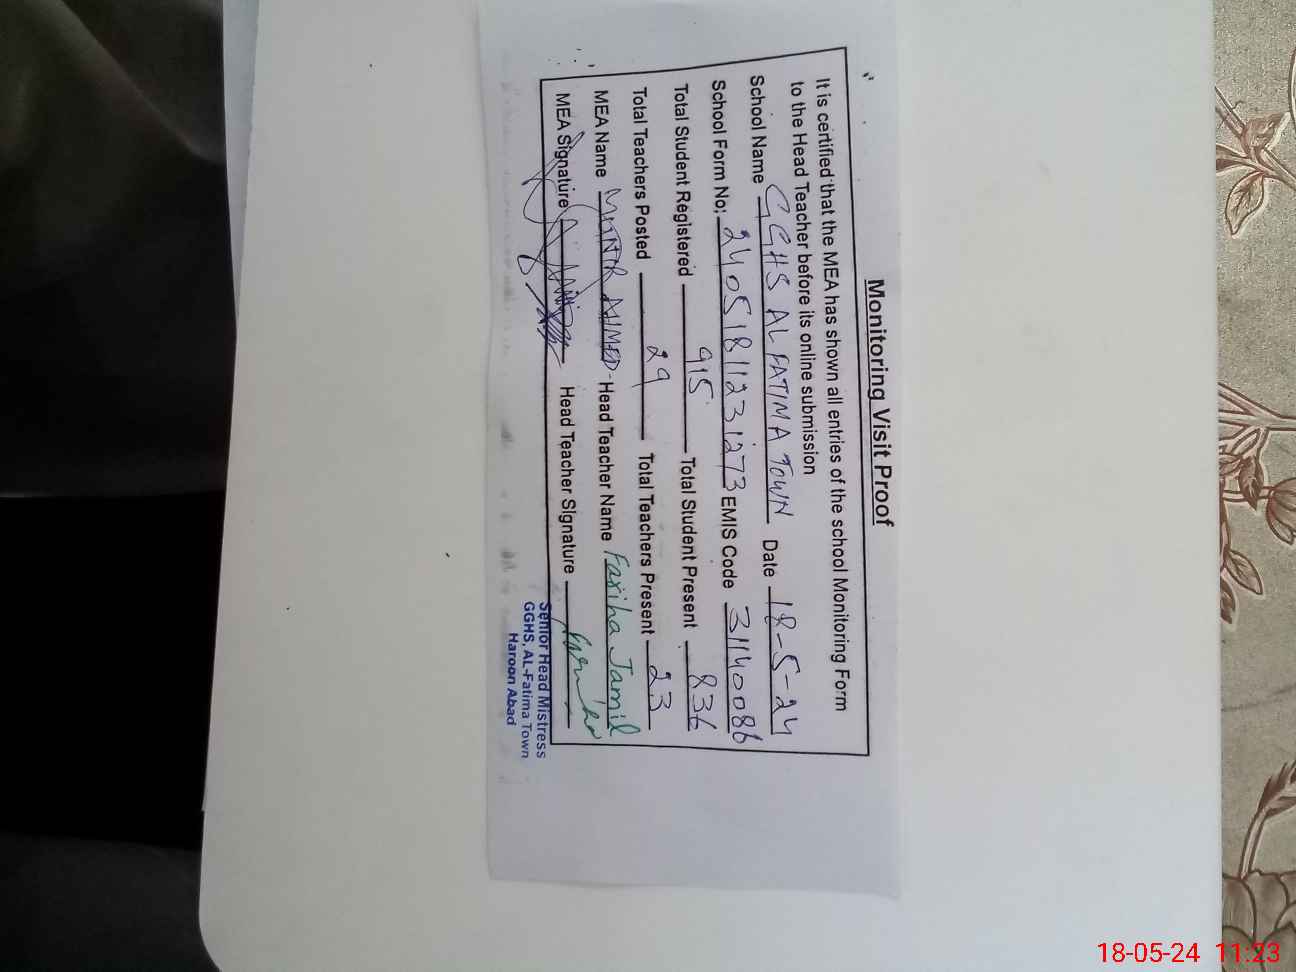 Monitoring Visit Proof
It is certified that the MEA has shown all entries of the school Monitoring Form
to the Head Teacher before its online submission
School Name GGHS AL FATIMA TOWN Date 18-5-24
School Form No: 24051811231273 EMIS Code 31140086
Total Student Registered 915 Total Student Present 836
Total Teachers Posted 29 Total Teachers Present 23
MEA Name MUNIR AHMED Head Teacher Name Fariha Jamil
MEA Signature Head Teacher Signature Fariha
Senior Head Mistress
GGHS, AL-Fatima Town
Haroon Abad
18-05-24 11:23